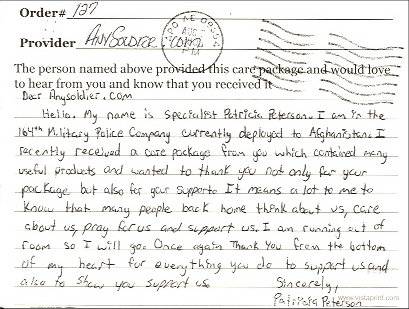 Order# 127
Provider AnySoldier.com
APO AE
AUG
PM
The person named above provided this care package and would love
to hear from you and know that you received it
Dear Anysoldier.com
Hello. My name is Specialist Patricia Peterson. I am in the
164th Military Police Company currently deployed to Afghanistan. I
recently received a care package from you which contained many
useful products and wanted to thank you not only for your
package but also for your support. It means a lot to me to
know that many people back home think about us, care
about us, pray for us and support us. I am running out of
room so I will go. Once again Thank You from the bottom
of my heart for everything you do to support us and
also to show you support us.
Sincerely,
Patricia Peterson
www.vistaprint.com